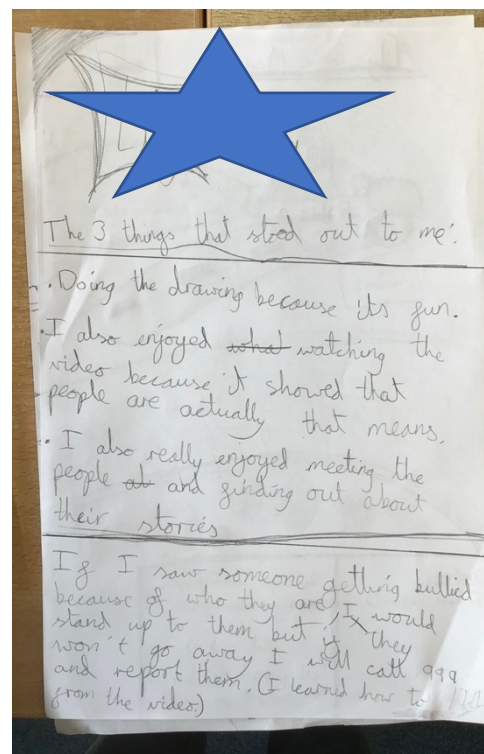 The 3 things that stood out to me:
. Doing the drawing because its fun.
. I also enjoyed what watching the
video because it showed that
people are actually that means.
. I also really enjoyed meeting the
people at and finding out about
their stories
If I saw someone getting bullied
because of who they are, I would
stand up to them but if they
won't go away I will call 999
and report them. (I learned how to
from the video.)